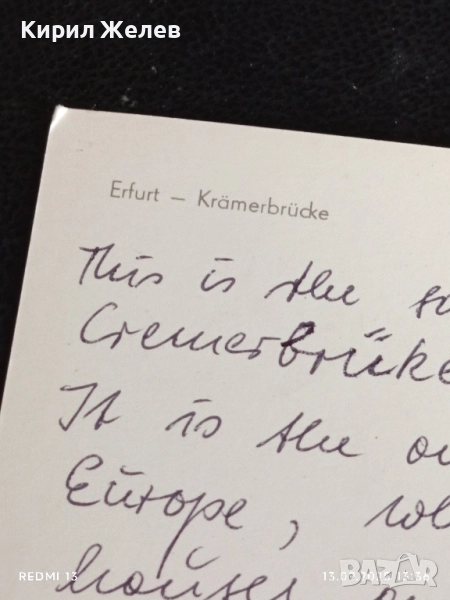 Кирил Желев
Erfurt – Krämerbrücke
This is the
Cremerbrüke
It is the
Europe,
houses
REDMI 13
BAZAR